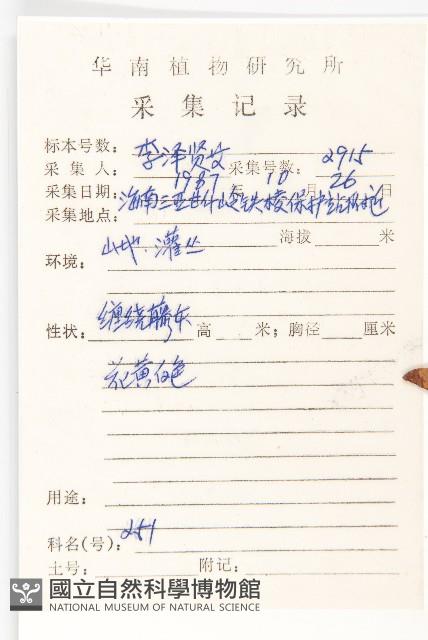 华南植物研究所
采集记录
标本号数：
采集人：李泽贤 采集号数：2915
采集日期：1987年10月26日
采集地点：海南三亚甘什岭铁棱保护站附近
海拔 米
环境：山地·灌丛
性状：缠绕藤本 高 米；胸径 厘米
花黄白色
用途：
科名(号)：251
土号： 附记：
國立自然科學博物館
NATIONAL MUSEUM OF NATURAL SCIENCE